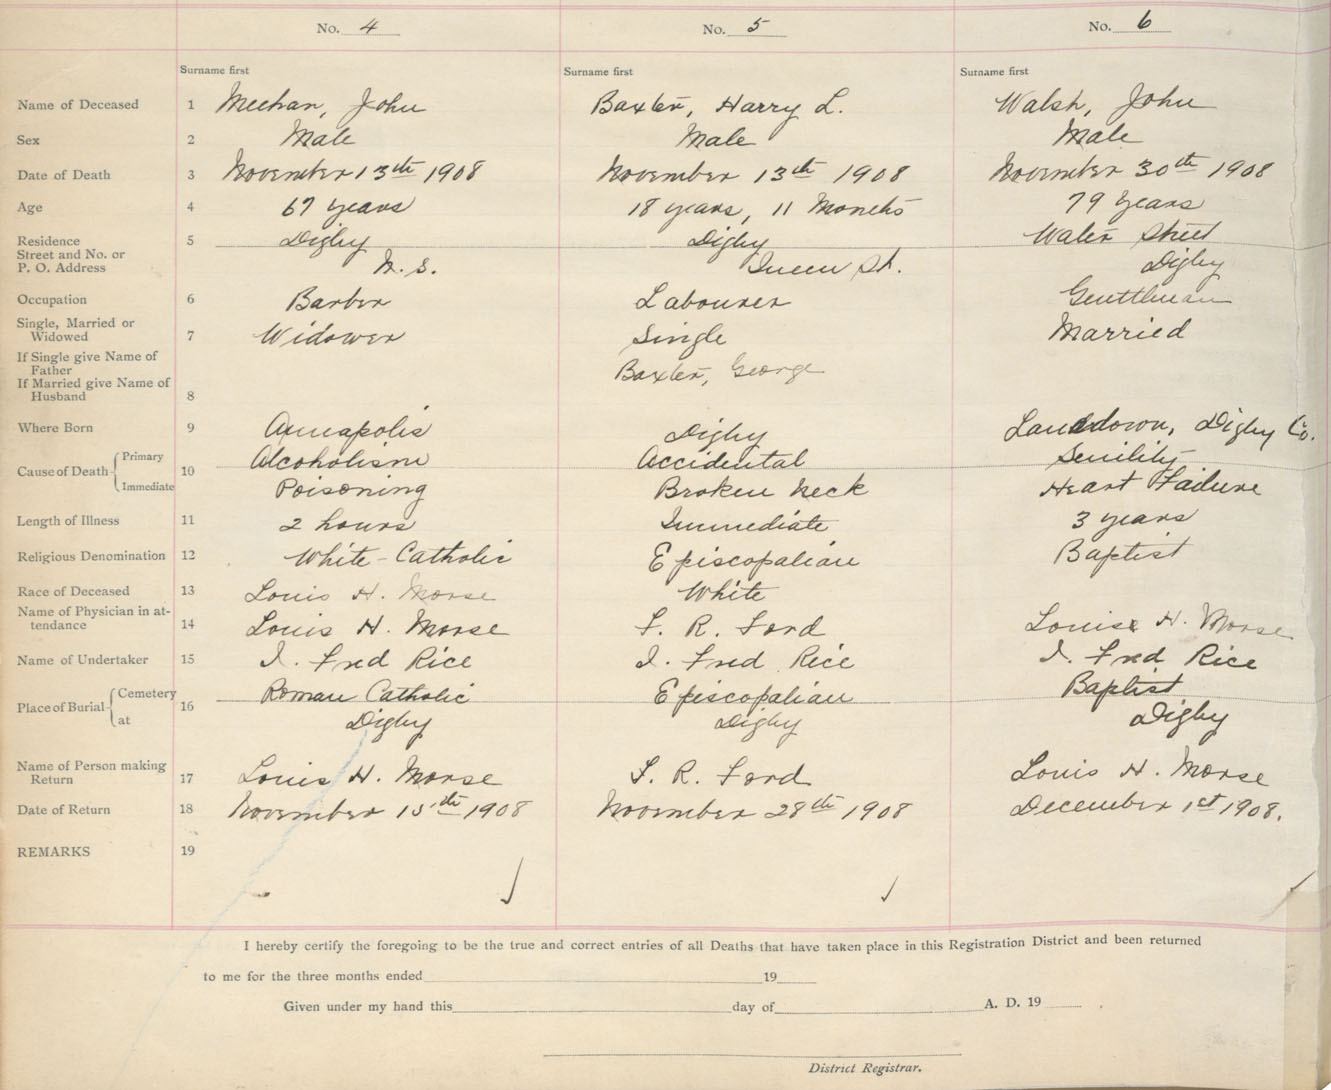 No. 4 No. 5 No. 6
Surname first Surname first Surname first
Name of Deceased 1 Meehan, John Baxter, Harry L. Walsh, John
Sex 2 Male Male Male
Date of Death 3 November 13th 1908 November 13th 1908 November 30th 1908
Age 4 67 years 18 years, 11 Months 79 years
Residence 5 Digby Digby Water Street
Street and No. or
P. O. Address N. S. Queen St. Digby
Occupation 6 Barber Labourer Genttleman
Single, Married or
Widowed 7 Widower Single Married
If Single give Name of
Father Baxter, George
If Married give Name of
Husband 8
Where Born 9 Annapolis Digby Lansdown, Digby Co.
Cause of Death Primary 10 Alcoholism Accidental Senility
Immediate Poisoning Broken Neck Heart Failure
Length of Illness 11 2 hours Immediate 3 years
Religious Denomination 12 White-Catholic Episcopalian Baptist
Race of Deceased 13 Louis H. Morse White
Name of Physician in at-
tendance 14 Louis H. Morse F. R. Ford Louise H. Morse
Name of Undertaker 15 I. Fred Rice I. Fred Rice I. Fred Rice
Place of Burial Cemetery 16 Roman Catholic Episcopalian Baptist
at Digby Digby Digby
Name of Person making
Return 17 Louis H. Morse F. R. Ford Louis H. Morse
Date of Return 18 November 15th 1908 November 28th 1908 December 1st 1908.
REMARKS 19
I hereby certify the foregoing to be the true and correct entries of all Deaths that have taken place in this Registration District and been returned
to me for the three months ended 19
Given under my hand this day of A. D. 19
District Registrar.